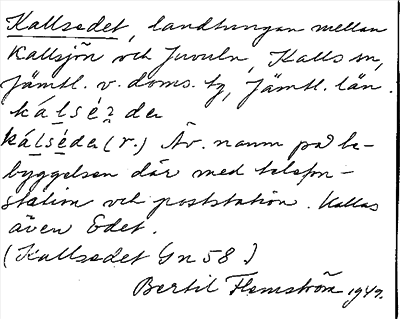 Kallsedet, landtungan mellan
Kallsjön och Juveln, Kalls sn,
Jämtl. v. doms. tg, Jämtl. län.
kálsé2da
kálséda (r.) Äv. namn på be-
byggelsen där med telefon-
station och poststation. Kallas
även Edet.
(Kallsedet Gn 58.)
Bertil Flemström 1949.